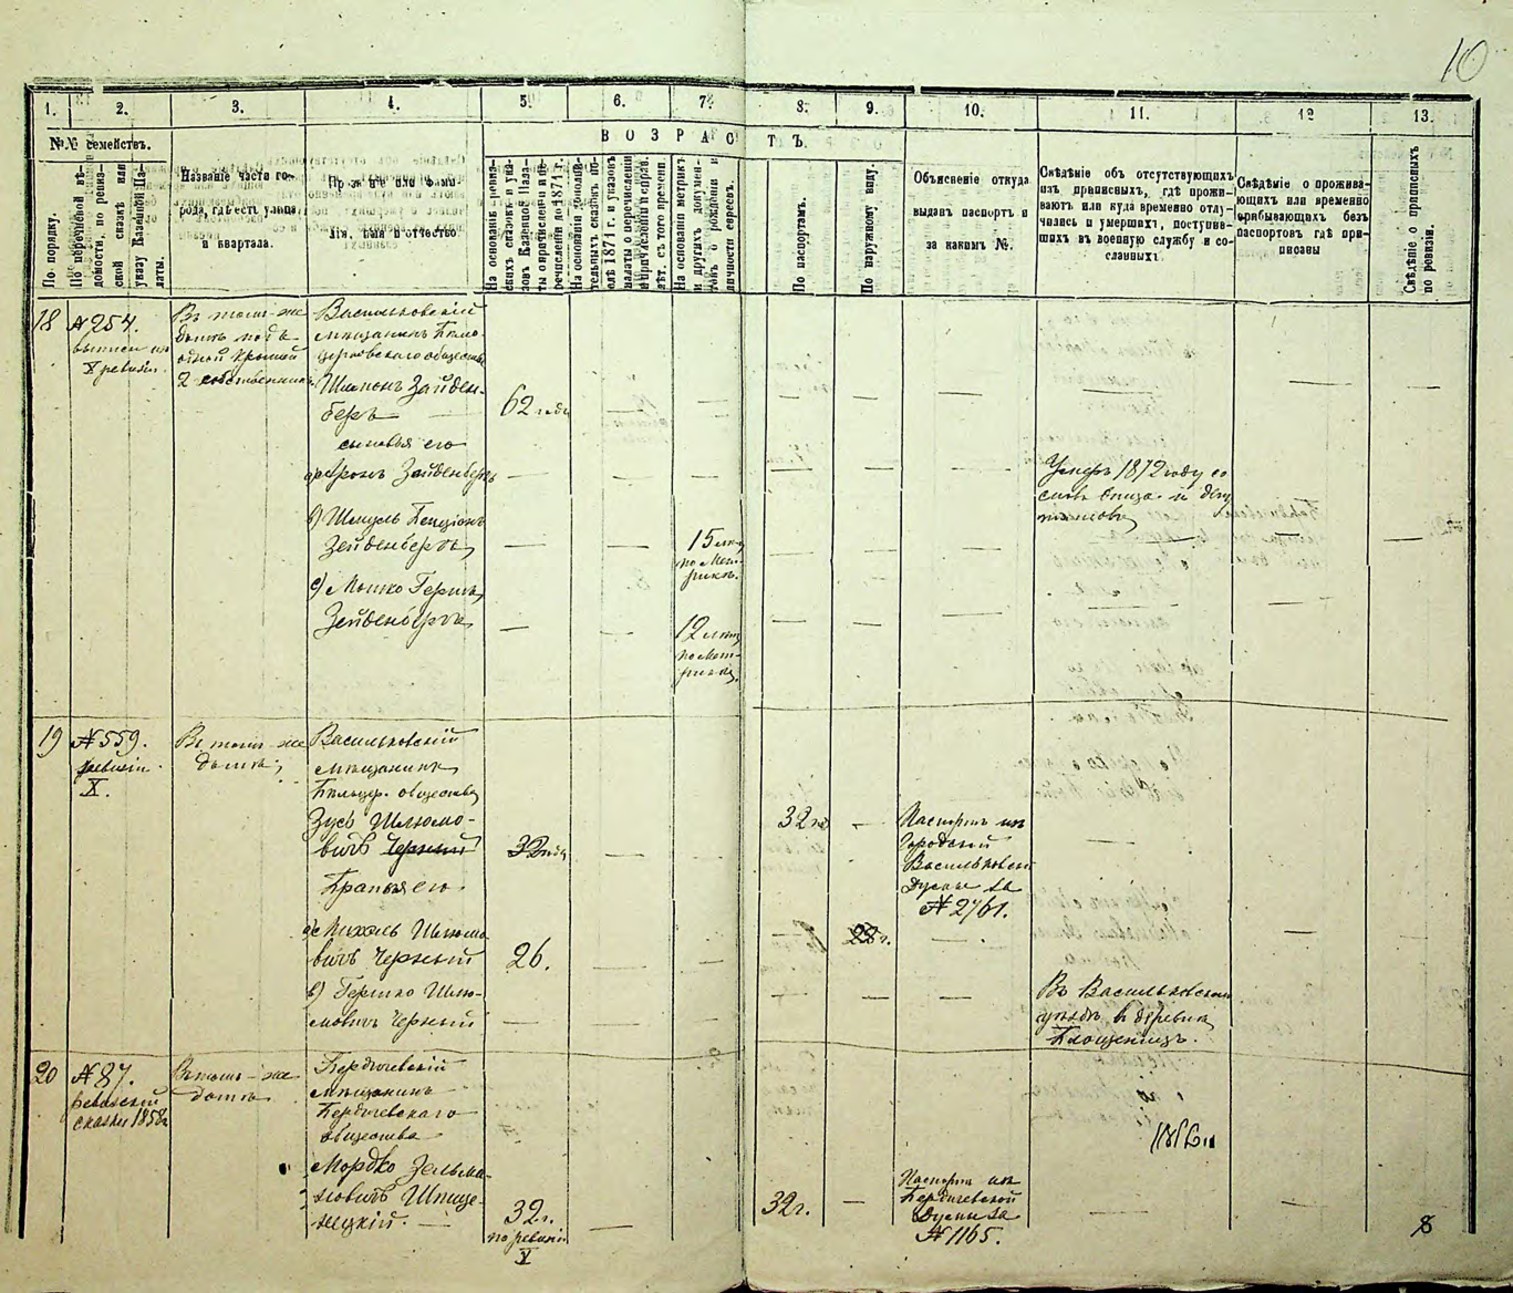 10
1. 2. 3. 4. 5. 6. 7. 8. 9. 10. 11. 12 13.
№№ семействъ.
ВОЗРАСТЪ.
По порядку.
По перечневой вѣ-
домости, по ревиз-
ской сказкѣ или
указу Казенной Па-
латы.
Названіе части го-
рода, гдѣ есть улица
и квартала.
Прозваніе или фами-
лія, имя и отчество
На основаніи ревиз-
скихъ сказокъ и ука-
зовъ Казенной Пала-
ты о причисленіи и пе-
речисленіи до 1871 г.
На основаніи дополни-
тельныхъ сказокъ по-
слѣ 1871 г. и указовъ
палаты о перечисленіи
и причисленіи и прибав.
лѣт. съ того времени.
На основаніи метрикъ
и другихъ докумен-
товъ о рожденіи и
личности евреевъ.
По паспортамъ.
По наружному виду.
Объясненіе откуда
выданъ паспортъ и
за какимъ №.
Свѣдѣніе объ отсутствующихъ
изъ приписныхъ, гдѣ прожи-
ваютъ или куда временно отлу-
чились и умершихъ, поступив-
шихъ въ военную службу и со-
сланныхъ
Свѣдѣніе о прожива-
ющихъ или временно
пребывающихъ безъ
паспортовъ гдѣ при-
писаны
Свѣдѣніе о приписныхъ
по ревизіи.
18
№ 254.
X ревизіи.
Въ томъ-же
домѣ подъ
одной крышей
2 собственника
Васильковскій
мѣщанинъ Бѣло-
церковскаго общества
Шимонъ Зайден-
беръ
62 года
сыновья его
а) Аронъ Зайденберъ
Умеръ 1872 году
в) Шмуль Бенціонъ
Зейденберъ
15 лѣтъ
по Мет-
рикѣ.
с) Мошко Герш
Зейденберъ
12 лѣтъ
по Мет-
рикѣ.
19
№ 559.
ревизіи
X.
Въ томъ-же
домѣ
Васильковскій
мѣщанинъ
Бѣлоцер. общества
Зусь Шлiомо-
вичъ Черный
32 года
32 г.
Паспортъ изъ
Городской
Васильковской
Думы за
№ 2761.
Братья его
а) Михель Шлiомо
вичъ Черный
26.
22 г.
в) Гершко Шлiо-
мовичъ Черный
Въ Васильковскомъ
уѣздѣ в деревнѣ
20
№ 87.
Ревизской
сказки 1858 г.
Въ томъ-же
домѣ
Бердичевскій
мѣщанинъ
Бердичевскаго
общества
Мордко Зельма-
новичъ Шпице-
нецкій.
32 г.
по ревизіи
X
32 г.
Паспортъ изъ
Бердичевской
Думы за
№ 1165.
8